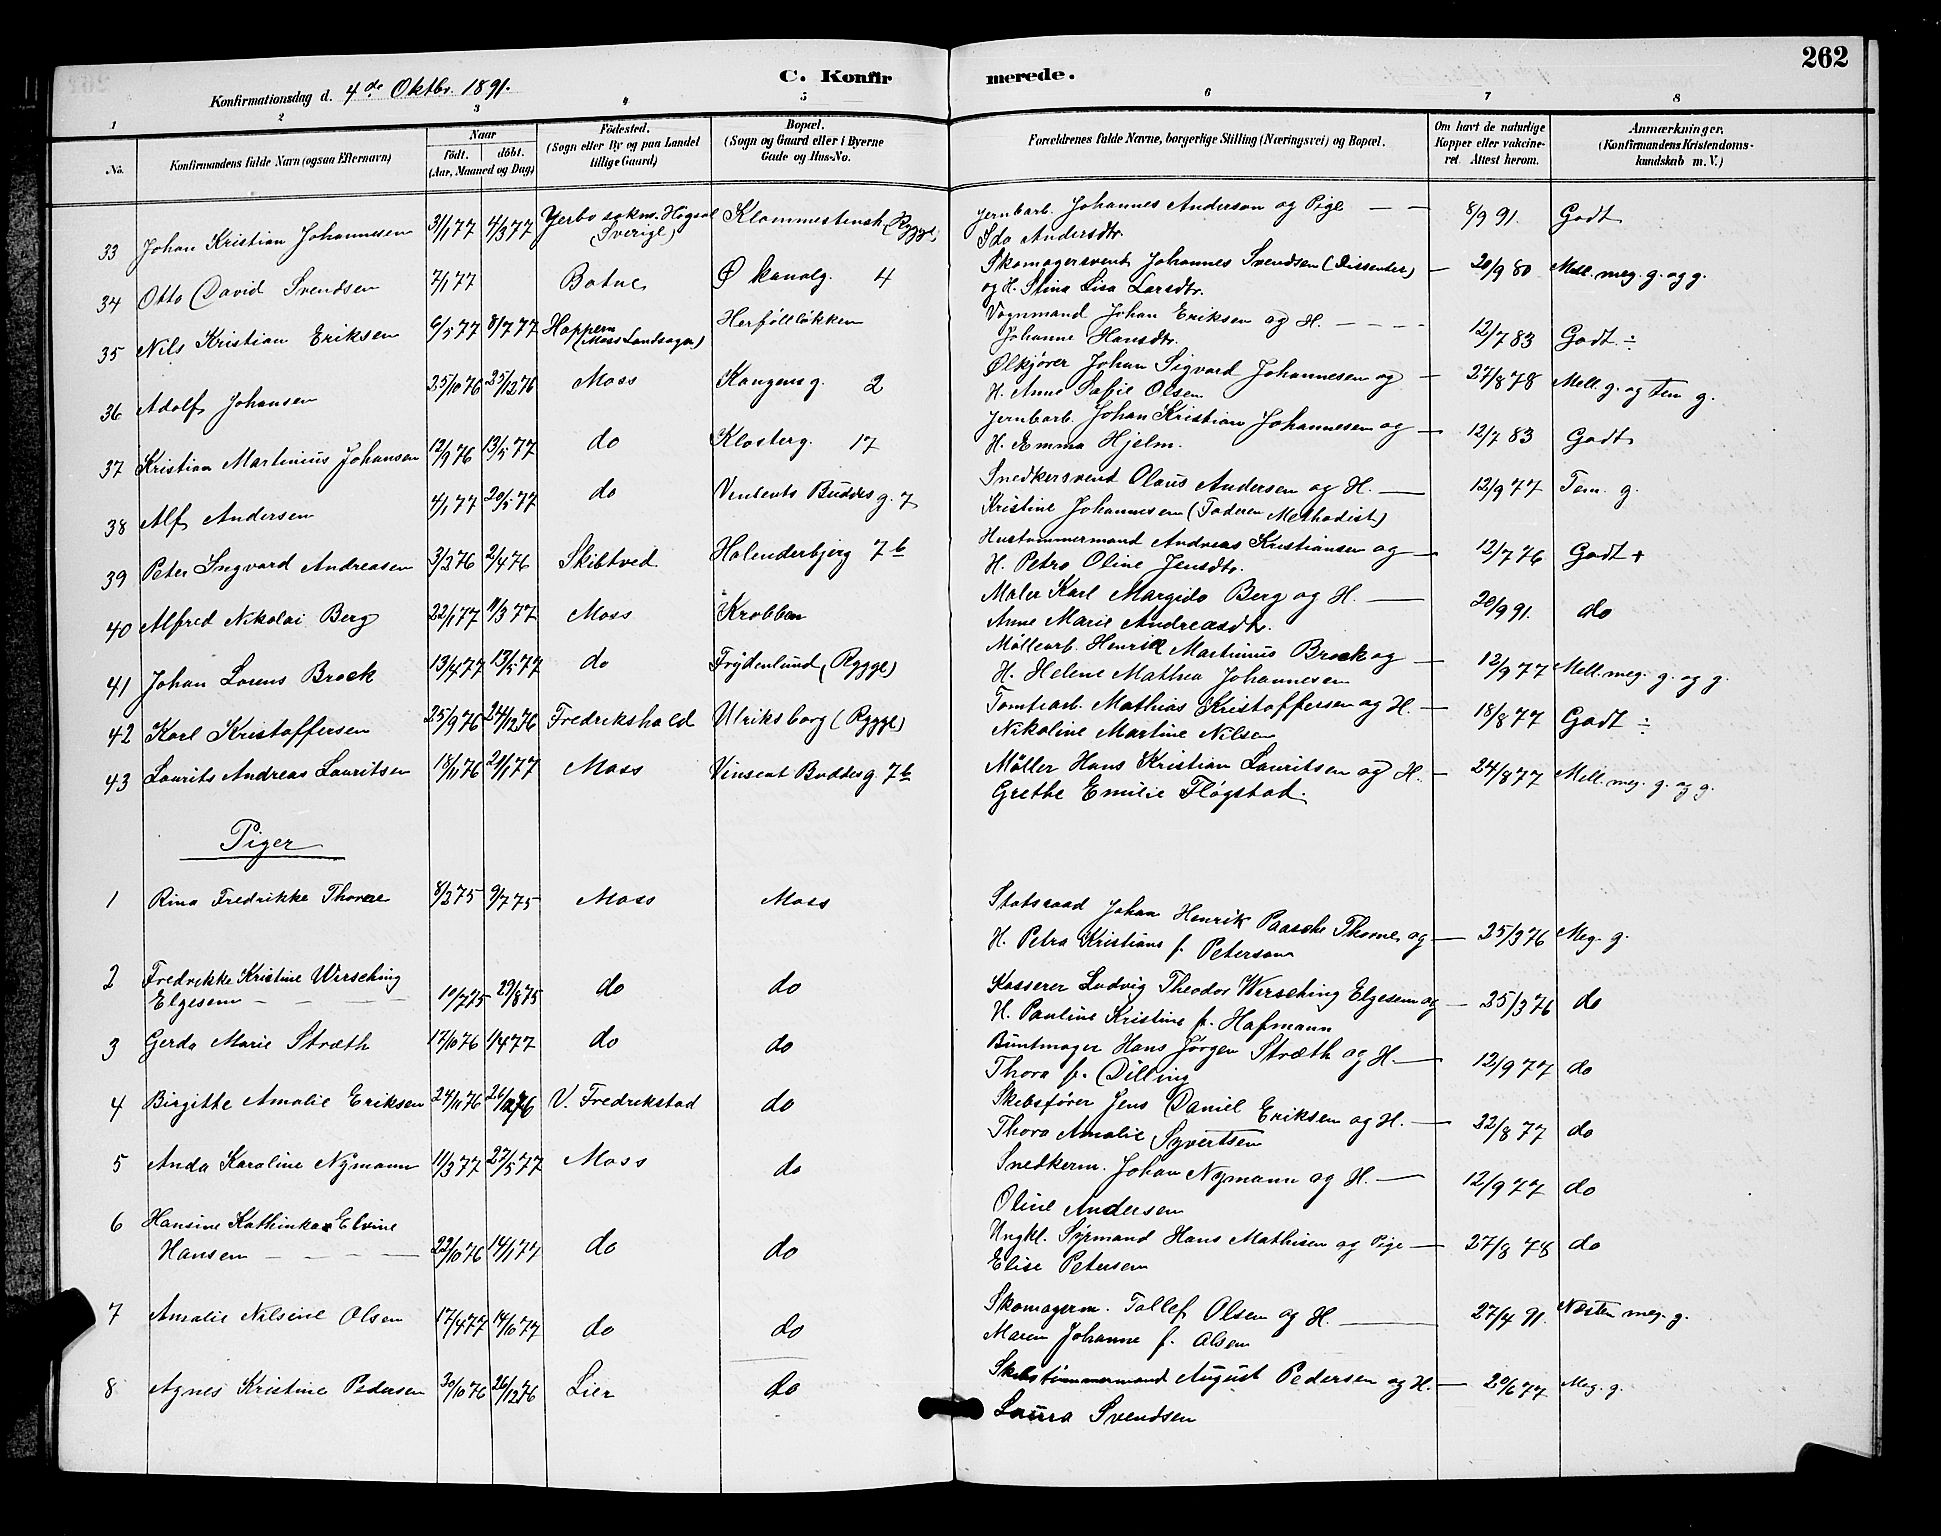 262
C. Konfirmerede.
Konfirmationsdag d. 4de Oktbr. 1891.
1 2 3 4 5 6 7 8
No. Konfirmandens fulde Navn (ogsaa Efternavn) Naar födt. döbt. (Aar, Maaned og Dag) Födested. (Sogn eller By og paa Landet tillige Gaard) Bopæl. (Sogn og Gaard eller i Byerne Gade og Hus-No. Forældrenes fulde Navne, borgerlige Stilling (Næringsvei) og Bopæl. Om havt de naturlige Kopper eller vakcineret. Attest herom. Anmærkninger. (Konfirmandens Kristendomskundskab m. V.)
33 Johan Kristian Johannesen 31/1 77 4/3 77 Yerbo sokn. Högsal (Sverige) Klommestensk (Rygge) Jernbarb. Johannes Anderson og Pige — — Ida Andersdtr. 8/9 91. Godt
34 Otto David Svendsen 7/1 77 Botne Ø kanalg. 4 Skomagersvend Johannes Svendsen (Dissenter) — og H. Stina Lisa Larsdtr. 20/9 80 Mell. meg. g. og g.
35 Nils Kristian Eriksen 6/5 77 8/7 77 Hoppern (Moss Landsogn) Herføllløkken Vognmand Johan Eriksen og H. — — — Johanne Hansdtr. 12/7 83 Godt ÷
36 Adolf Johansen 25/10 76 25/12 76 Moss Kongensg. 2 Ølkjører Johan Sigvard Johannesen og — H. Anne Sofie Olsen 27/8 78 Mell g. og tem g.
37 Kristian Martinius Johansen 12/9 76 13/5 77 do Klosterg. 17 Jernbarb. Johan Kristian Johannesen og — H. Emma Hjelm. 12/7 83 Godt
38 Alf Andersen 4/1 77 20/5 77 do Vincents Buddes g. 7 Snedkersvend Olaus Andersen og H. — Kristine Johannesen (Faderen Methodist) 12/9 77 Tem. g.
39 Peter Ingvard Andreasen 3/2 76 2/4 76 Skibtved. Holenderbjerg 7b Hustømmermand Andreas Kristiansen og — H. Petra Oline Jensdtr. 12/7 76 Godt +
40 Alfred Nikolai Berg 22/1 77 11/3 77 Moss Krabben Maler Karl Margido Berg og H. — Anne Marie Andreasdtr. 20/9 91. do
41 Johan Lorens Brock 13/4 77 13/5 77 do Frydenlund (Rygge) Møllearb. Henrik Martinius Brock og — H. Helene Mathea Johannesen 12/9 77 Mell. meg. g. og g.
42 Karl Kristoffersen 25/9 76 24/12 76 Fredrikshald Ulriksborg (Rygge) Tomtearb. Mathias Kristoffersen og H. — Nikoline Martine Nilsen 18/8 77 Godt ÷
43 Laurits Andreas Lauritsen 18/11 76 21/1 77 Moss Vinsent Buddesg. 7b Møller Hans Kristian Lauritsen og H. — Grethe Emilie Fløgstad. 24/8 77 Mell. meg. g. og g.
Piger
1 Rina Fredrikke Thorne 8/2 75 9/7 75 Moss Moss Statsraad Johan Henrik Paasche Thorne og — H. Petra Kristians f. Peterson 25/3 76 Meg. g.
2 Fredrikke Kristine Wersching Elgesem — — — 10/7 75 29/8 75 do do Kasserer Ludvig Theodor Wersching Elgesem og — H. Pauline Kristine f. Hafmann 25/3 76 do
3 Gerda Marie Stræth 17/10 76 1/4 77 do do Buntmager Hans Jørgen Stræth og H. — Thora f. Dilling 12/9 77 do
4 Birgitte Amalie Eriksen 24/11 76 26/12 76 V. Fredrikstad do Skibsfører Jens Daniel Eriksen og H. — Thora Amalie Syvertsen 22/8 77 do
5 Anda Karoline Nymann 11/3 77 27/5 77 Moss do Snedkerm. Johan Nymann og H. — Oline Andersen 12/9 77 do
6 Hansine Kathinka Elvine Hansen — — — 22/10 76 14/1 77 do do Ungkl. Sømand Hans Mathisen og Pige — Elise Petersen 27/8 78 do
7 Amalie Nilsine Olsen 17/4 77 14/10 77 do do Skomagerm. Tollef Olsen og H. — Maren Johanne f. Olsen 27/4 91. Næsten meg. g.
8 Agnes Kristine Pedersen 30/10 76 26/12 76 Lier do Skibstømmermand August Pedersen og H. — Laura Svendsen 20/6 77 Meg. g.